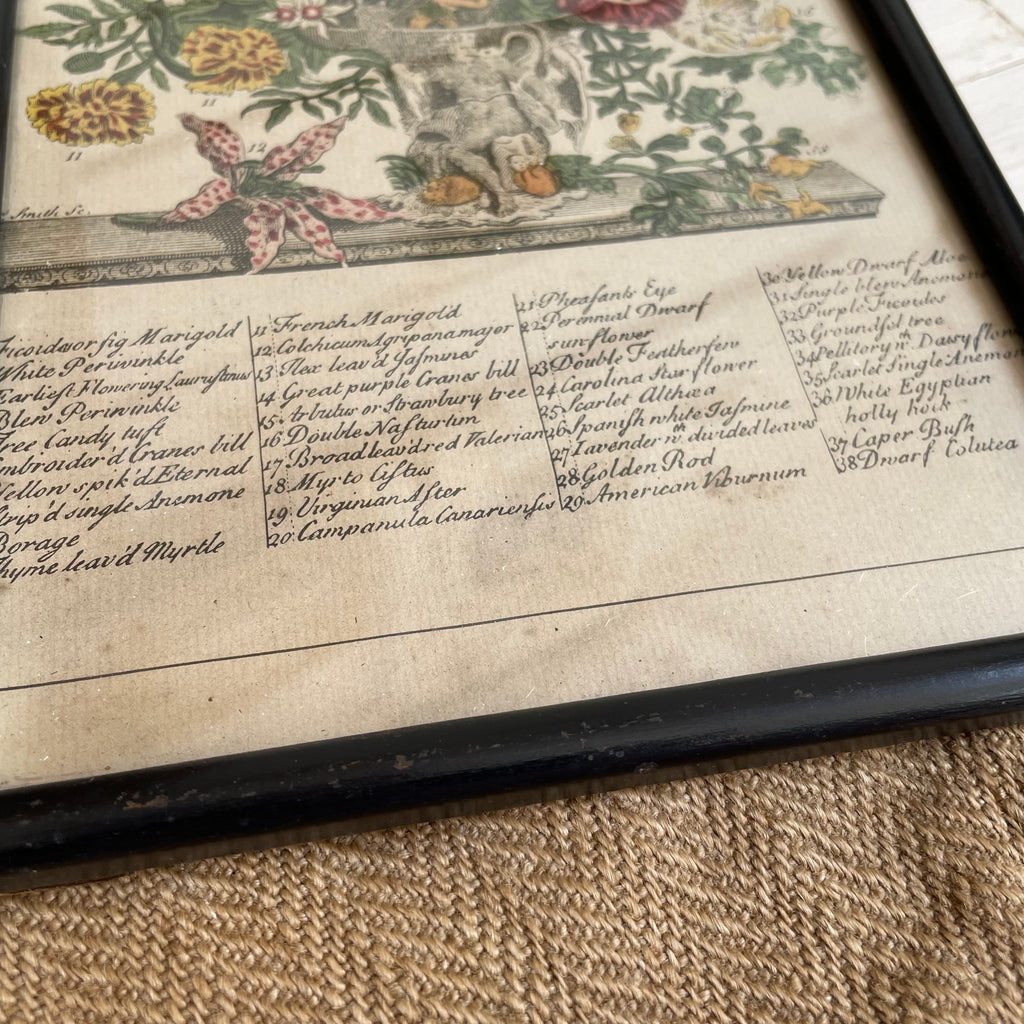 11
11
12
Smith Sc.
Ficoides or fig Marigold
White Periwinkle
Earliest Flowering Lauruſtinus
Blew Periwinkle
Tree Candy tuft
Embroider'd Cranes bill
Yellow spik'd Eternal
Strip'd single Anemone
Borage
Thyme leav'd Myrtle
11 French Marigold
12 Colchicum Agripana major
13 Ilex leav'd Jaſmines
14 Great purple Cranes bill
15 Arbutus or Strawbury tree
16 Double Naſturtium
17 Broad leav'd red Valerian
18 Myrto Ciſtus
19 Virginian Aſter
20 Campanula Canarienſis
21 Pheaſants Eye
22 Perennial Dwarf
sun-flower
23 Double Featherfew
24 Carolina Star flower
25 Scarlet Althæa
26 Spanish white Jaſmine
27 Lavender wth. divided leaves
28 Golden Rod
29 American Viburnum
30 Yellow Dwarf Aloe
31 Single blew Anemone
32 Purple Ficoides
33 Groundſel tree
34 Pellitory wth. Daisy flower
35 Scarlet Single Anemon
36 White Egyptian
holly hock
37 Caper Buſh
38 Dwarf Colutea